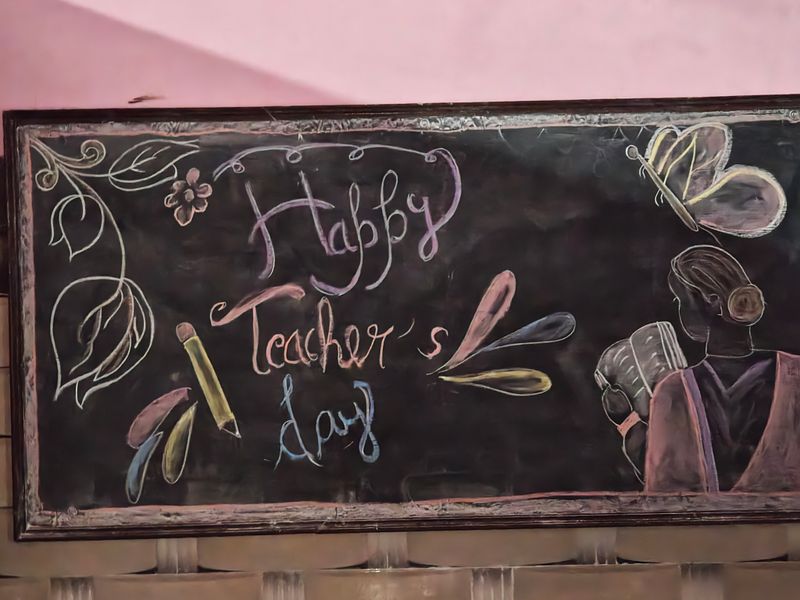 Happy
Teacher's
day